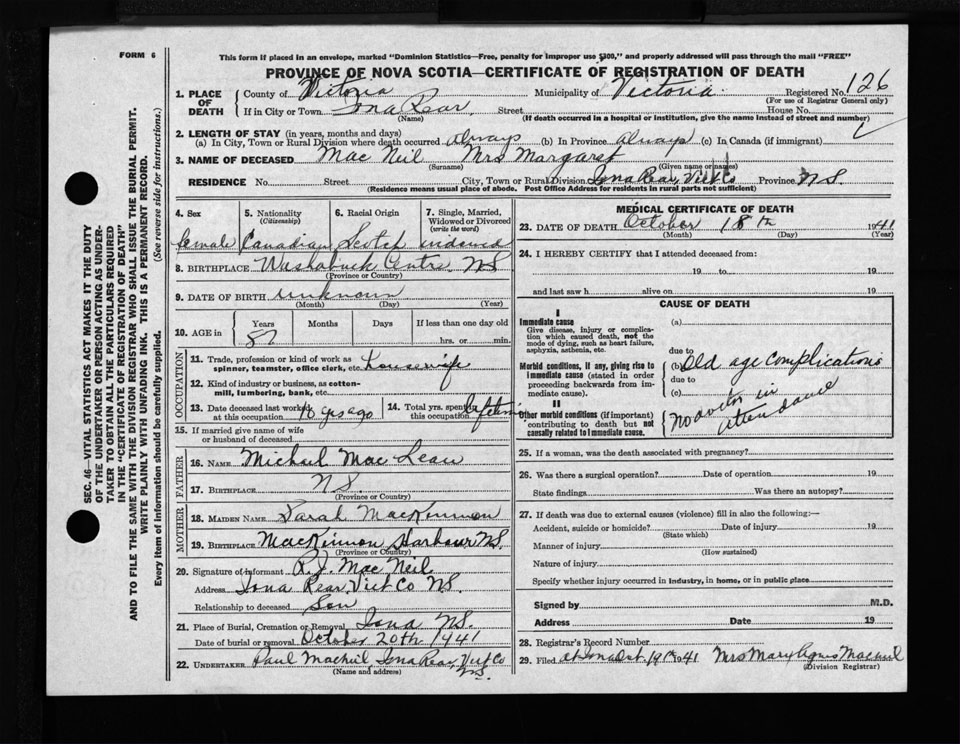 FORM 6
This form if placed in an envelope, marked "Dominion Statistics—Free, penalty for improper use $300," and properly addressed will pass through the mail "FREE"
PROVINCE OF NOVA SCOTIA—CERTIFICATE OF REGISTRATION OF DEATH
1. PLACE OF DEATH County of Victoria Municipality of Victoria Registered No. 126
(For use of Registrar General only)
If in City or Town Iona Rear Street House No.
(Name) (If death occurred in a hospital or institution, give the name instead of street and number)
2. LENGTH OF STAY (in years, months and days)
(a) In City, Town or Rural Division where death occurred always (b) In Province always (c) In Canada (if immigrant)
3. NAME OF DECEASED Mac Neil Mrs Margaret
(Surname) (Given name or names)
RESIDENCE No. Street City, Town or Rural Division Iona Rear, Vict Co Province N.S.
(Residence means usual place of abode. Post Office Address for residents in rural parts not sufficient)
SEC. 46—VITAL STATISTICS ACT MAKES IT THE DUTY
OF THE UNDERTAKER OR PERSON ACTING AS UNDER-
TAKER TO OBTAIN ALL THE PARTICULARS REQUIRED
IN THE "CERTIFICATE OF REGISTRATION OF DEATH"
AND TO FILE THE SAME WITH THE DIVISION REGISTRAR WHO SHALL ISSUE THE BURIAL PERMIT.
WRITE PLAINLY WITH UNFADING INK. THIS IS A PERMANENT RECORD.
Every item of information should be carefully supplied. (See reverse side for instructions.)
4. Sex 5. Nationality (Citizenship) 6. Racial Origin 7. Single, Married, Widowed or Divorced (write the word)
female Canadian Scotch widowed
8. BIRTHPLACE Washabuck Centre N.S
(Province or Country)
9. DATE OF BIRTH unknown
(Month) (Day) (Year)
10. AGE in Years Months Days If less than one day old
87 hrs. or min.
OCCUPATION
11. Trade, profession or kind of work as spinner, teamster, office clerk, etc. Housewife
12. Kind of industry or business, as cotton-mill, lumbering, bank, etc.
13. Date deceased last worked at this occupation 10 yrs ago 14. Total yrs. spent in this occupation Lifetime
15. If married give name of wife or husband of deceased
FATHER
16. NAME Michael Mac Lean
17. BIRTHPLACE N.S.
(Province or Country)
MOTHER
18. MAIDEN NAME Sarah MacKinnon
19. BIRTHPLACE MacKinnon Harbour N.S.
(Province or Country)
20. Signature of informant R. J. Mac Neil
Address Iona Rear, Vict Co N.S.
Relationship to deceased Son
21. Place of Burial, Cremation or Removal Iona N.S.
Date of burial or removal October 20th 1941
22. UNDERTAKER Paul Macneil Iona Rear, Vict Co
(Name and address) N.S.
MEDICAL CERTIFICATE OF DEATH
23. DATE OF DEATH October 18th 1941
(Month) (Day) (Year)
24. I HEREBY CERTIFY that I attended deceased from:
19 to 19
and last saw h alive on 19
CAUSE OF DEATH
I
Immediate cause (a)
Give disease, injury or complica-
tion which caused death, not the
mode of dying, such as heart failure,
asphyxia, asthenia, etc.
due to
Morbid conditions, if any, giving rise to (b) Old age complications
immediate cause (stated in order due to
proceeding backwards from im- (c)
mediate cause).
II
Other morbid conditions (if important) No doctor in
contributing to death but not attendance
causally related to immediate cause.
25. If a woman, was the death associated with pregnancy?
26. Was there a surgical operation? Date of operation 19
State findings Was there an autopsy?
27. If death was due to external causes (violence) fill in also the following:—
Accident, suicide or homicide? Date of injury 19
(State which)
Manner of injury
(How sustained)
Nature of injury
Specify whether injury occurred in industry, in home, or in public place
Signed by M.D.
Address Date 19
28. Registrar's Record Number
29. Filed at Iona Oct 19th 1941 Mrs Mary Agnes Macneil
(Division Registrar)